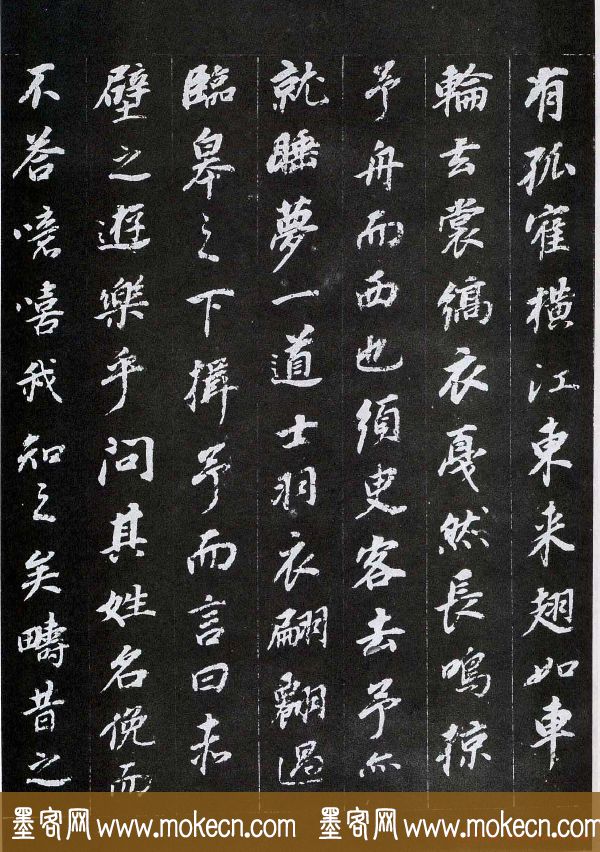 有孤寉橫江東来翅如車
輪玄裳縞衣戞然長鳴掠
予舟而西也須臾客去予亦
就睡夢一道士羽衣翩翩過
臨皋之下揖予而言曰赤
壁之遊樂乎問其姓名俛而
不荅嗚嘻我知之矣疇昔之
墨客网 www.mokecn.com 墨客网 www.mokecn.com